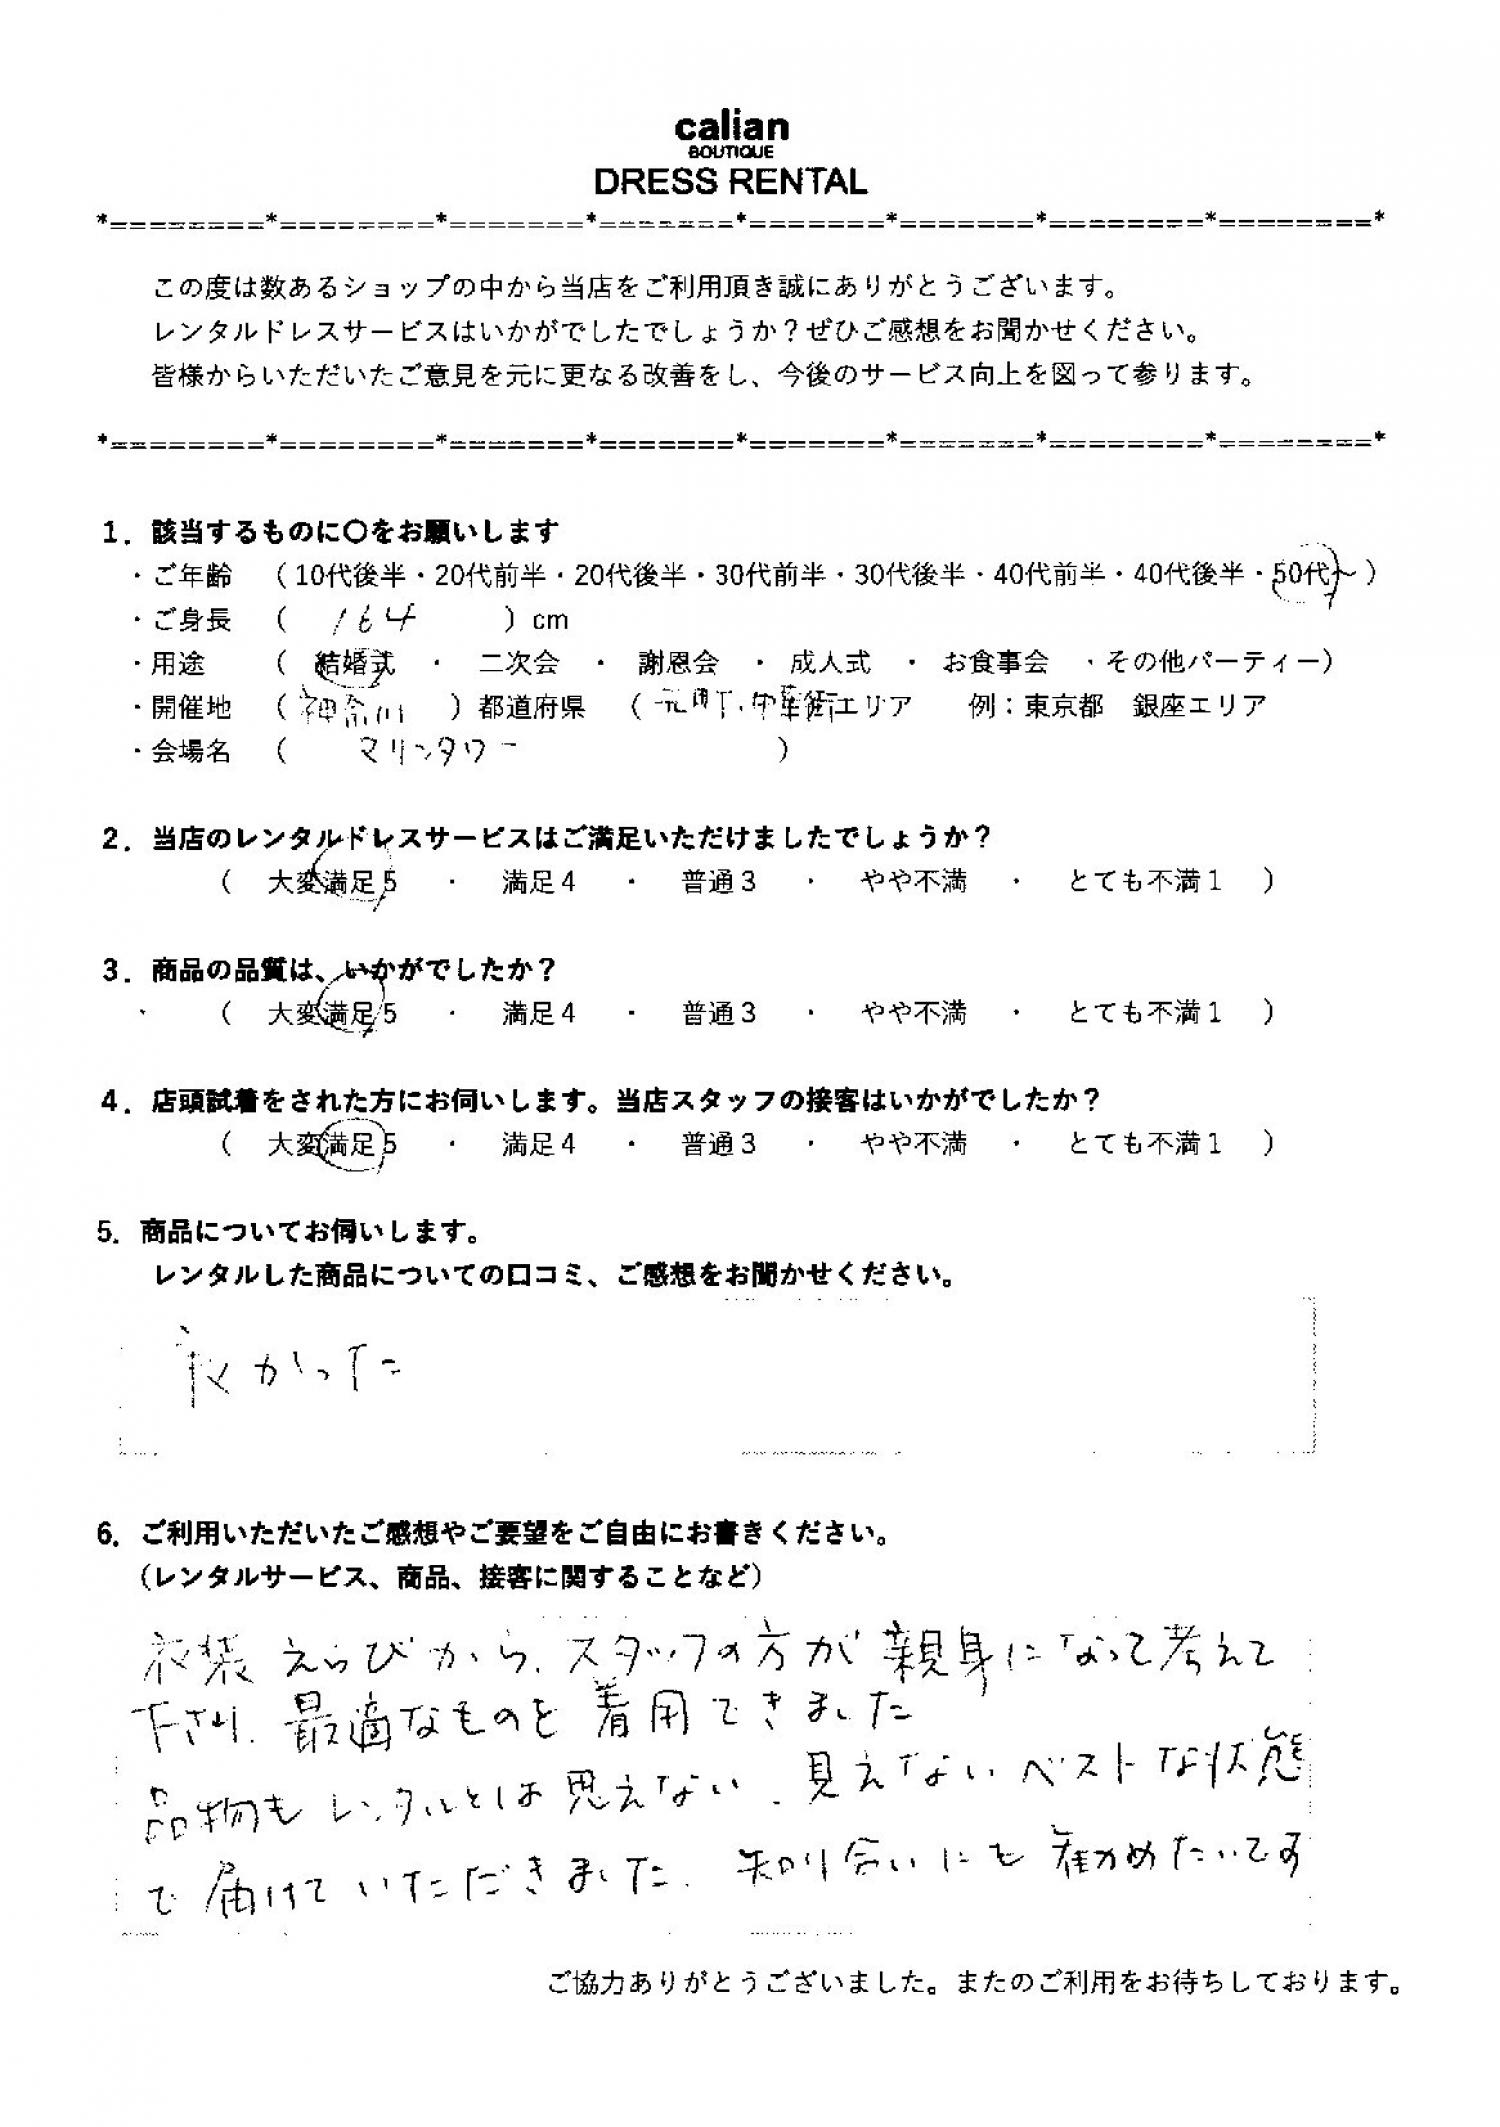 calian
BOUTIQUE
DRESS RENTAL
*========*========*=======*=======*=======*=======*========*========*
この度は数あるショップの中から当店をご利用頂き誠にありがとうございます。
レンタルドレスサービスはいかがでしたでしょうか？ぜひご感想をお聞かせください。
皆様からいただいたご意見を元に更なる改善をし、今後のサービス向上を図って参ります。
*========*========*=======*=======*=======*=======*========*========*
1．該当するものに〇をお願いします
・ご年齢 （10代後半・20代前半・20代後半・30代前半・30代後半・40代前半・40代後半・50代～）
・ご身長 （ 164 ）cm
・用途 （ 結婚式 ・ 二次会 ・ 謝恩会 ・ 成人式 ・ お食事会 ・その他パーティー）
・開催地 （ 神奈川 ）都道府県 （ 元町、中華街エリア 例：東京都 銀座エリア
・会場名 （ マリンタワー ）
2．当店のレンタルドレスサービスはご満足いただけましたでしょうか？
（ 大変満足5 ・ 満足4 ・ 普通3 ・ やや不満 ・ とても不満1 ）
3．商品の品質は、いかがでしたか？
（ 大変満足5 ・ 満足4 ・ 普通3 ・ やや不満 ・ とても不満1 ）
4．店頭試着をされた方にお伺いします。当店スタッフの接客はいかがでしたか？
（ 大変満足5 ・ 満足4 ・ 普通3 ・ やや不満 ・ とても不満1 ）
5．商品についてお伺いします。
レンタルした商品についての口コミ、ご感想をお聞かせください。
かった
6．ご利用いただいたご感想やご要望をご自由にお書きください。
（レンタルサービス、商品、接客に関することなど）
衣装えらびから、スタッフの方が親身になって考えて
下さり、最適なものを着用できました
品物もレンタルとは思えない、見えないベストな状態
で届けていただきました、知り合いにも勧めたいです
ご協力ありがとうございました。またのご利用をお待ちしております。